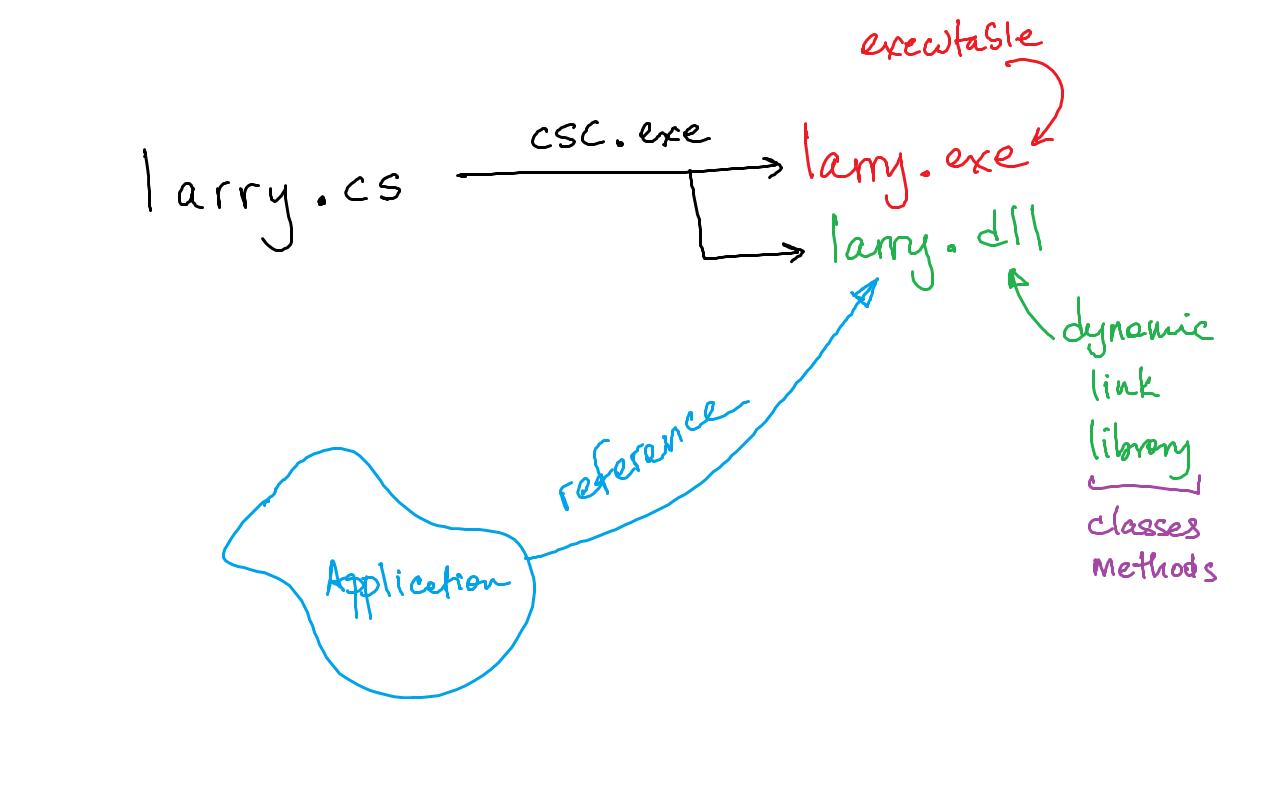 executable
csc.exe
larry.cs
larry.exe
larry.dll
dynamic
link
library
classes
methods
reference
Application